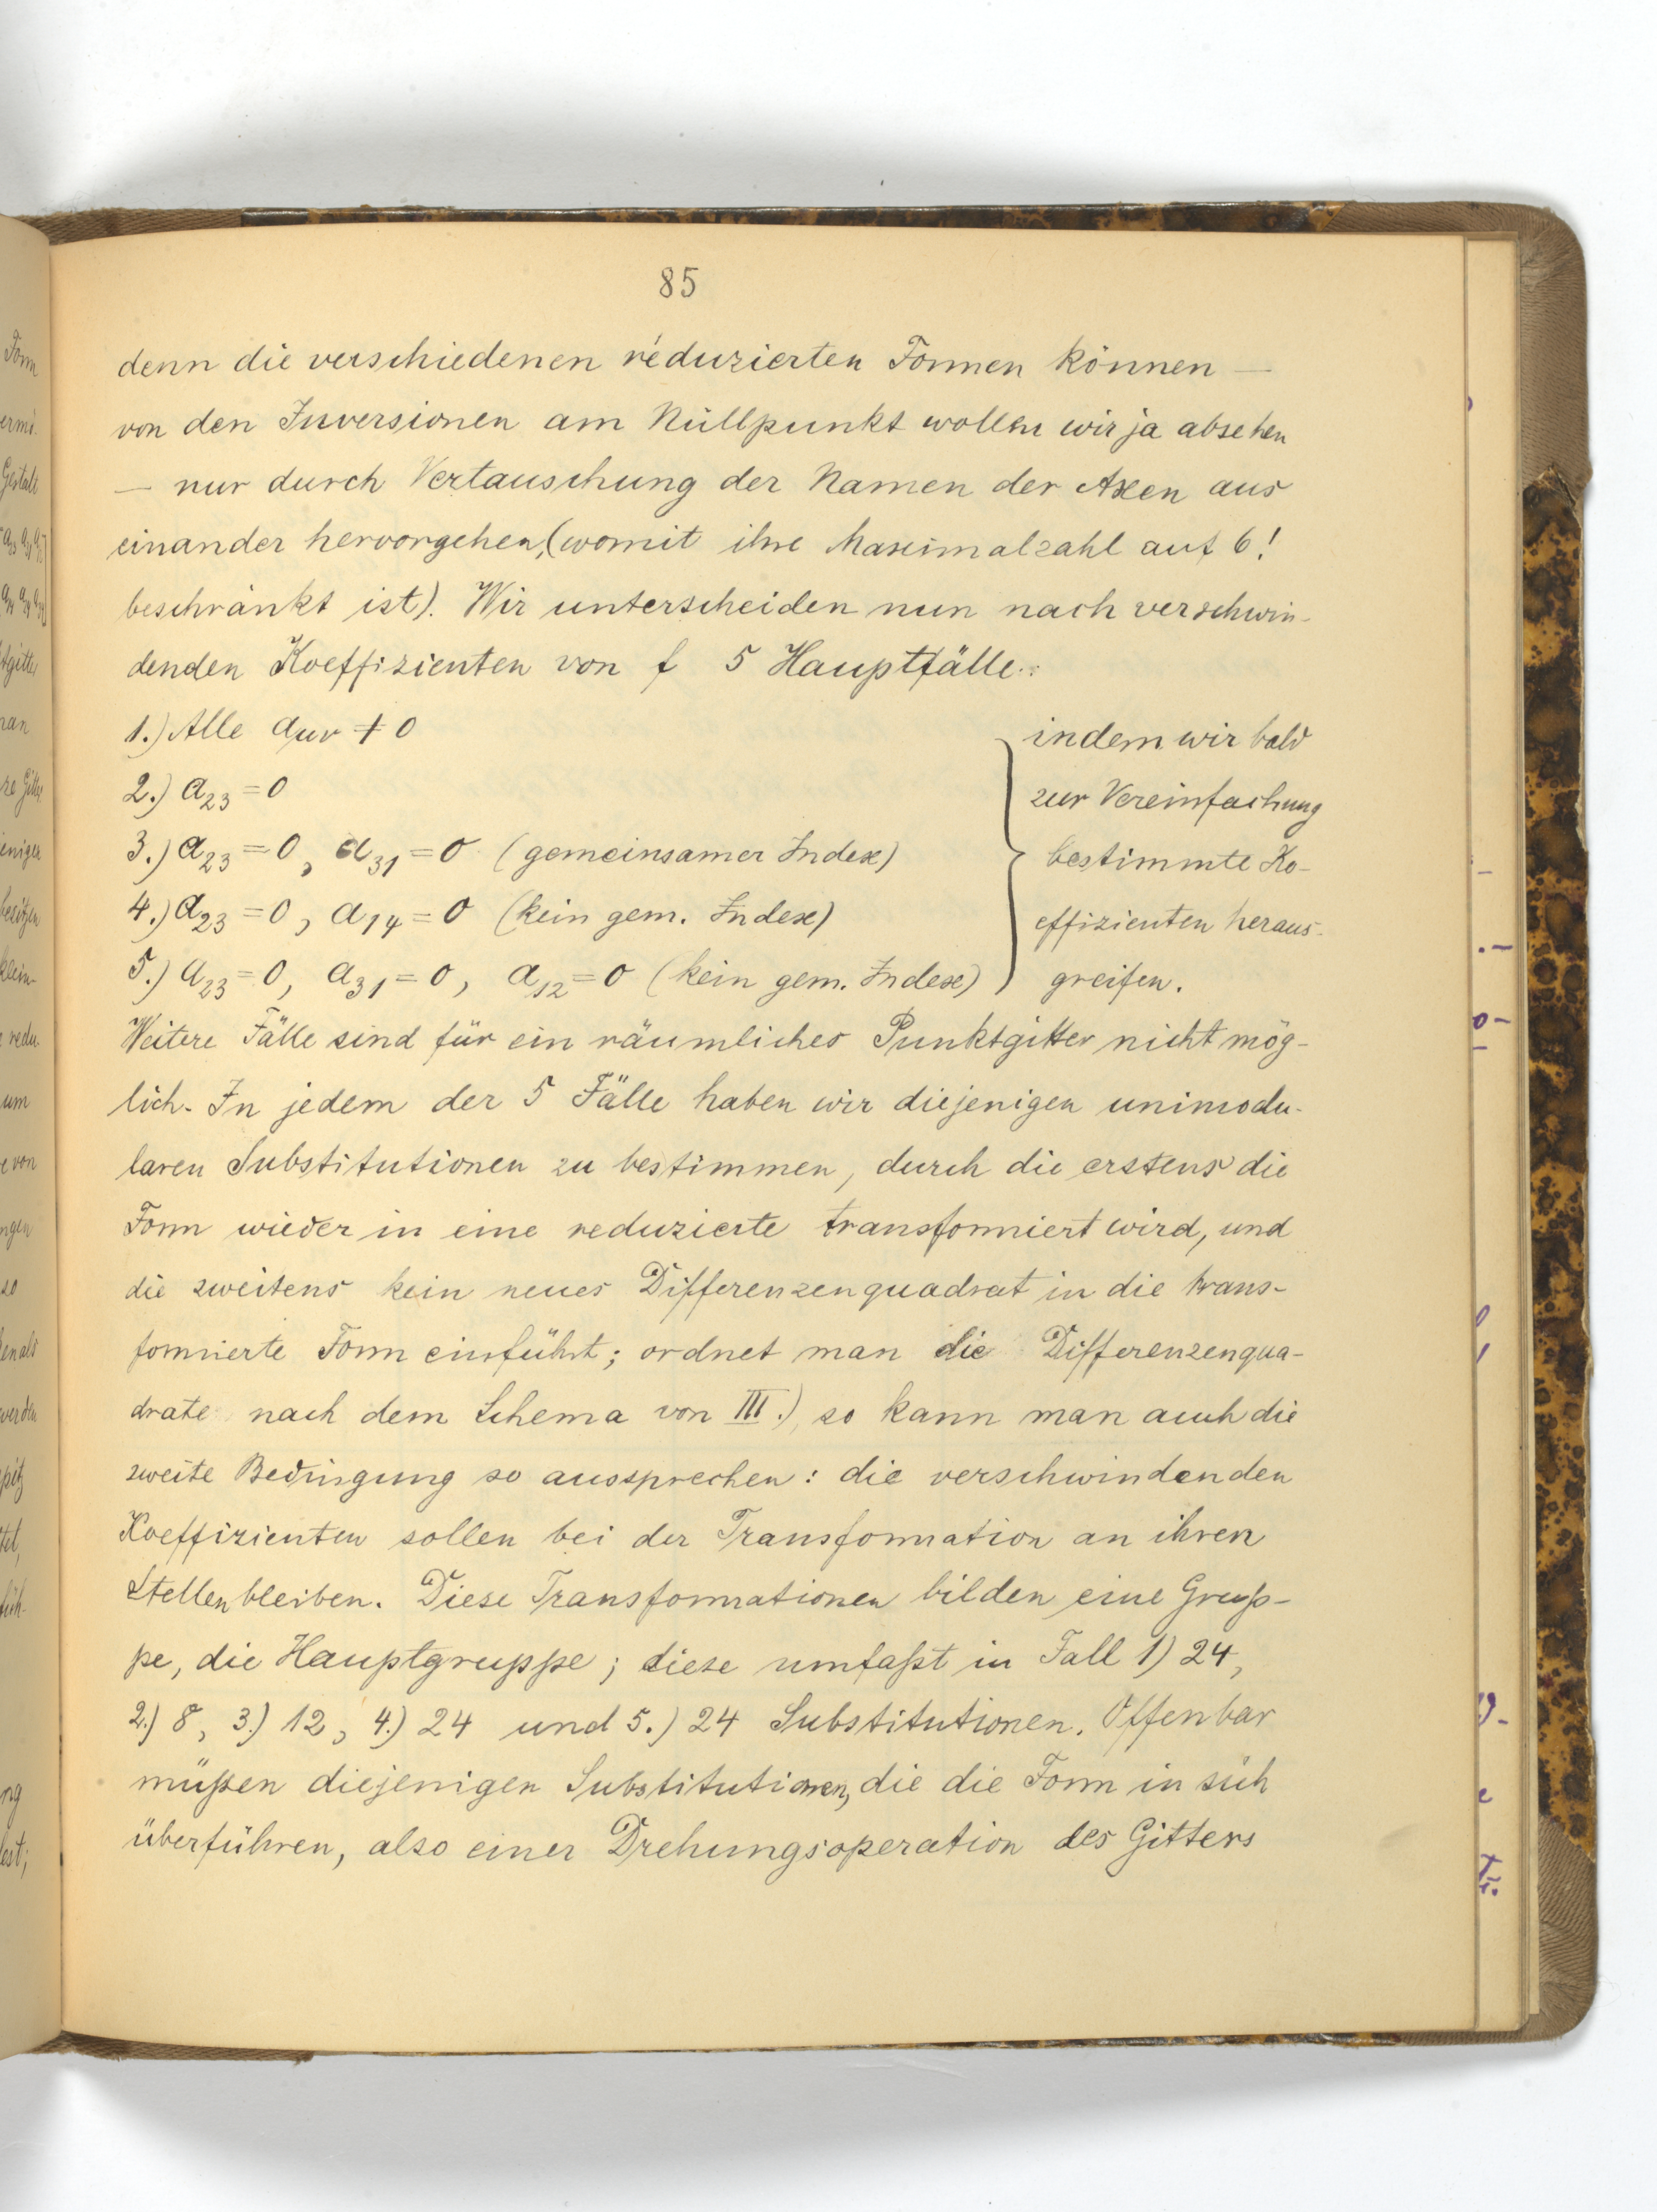 85
denn die verschiedenen reduzierten Formen können —
von den Inversionen am Nullpunkt wollen wir ja absehen
— nur durch Vertauschung der Namen der Axen aus
einander hervorgehen, (womit ihre Maximalzahl auf 6!
beschränkt ist). Wir unterscheiden nun nach verschwin-
denden Koeffizienten von f 5 Hauptfälle:
1.) Alle aμν ≠ 0
2.) a₂₃ = 0
3.) a₂₃ = 0, a₃₁ = 0 (gemeinsamer Index)
4.) a₂₃ = 0, a₁₄ = 0 (kein gem. Index)
5.) a₂₃ = 0, a₃₁ = 0, a₁₂ = 0 (kein gem. Index)
indem wir bald
zur Vereinfachung
bestimmte Ko-
effizienten heraus-
greifen.
Weitere Fälle sind für ein räumliches Punktgitter nicht mög-
lich. In jedem der 5 Fälle haben wir diejenigen unimodu-
laren Substitutionen zu bestimmen, durch die erstens die
Form wieder in eine reduzierte transformiert wird, und
die zweitens kein neues Differenzenquadrat in die trans-
formierte Form einführt; ordnet man die Differenzenqua-
drate nach dem Schema von III.), so kann man auch die
zweite Bedingung so aussprechen: die verschwindenden
Koeffizienten sollen bei der Transformation an ihren
Stellen bleiben. Diese Transformationen bilden eine Grup-
pe, die Hauptgruppe; diese umfaßt in Fall 1) 24,
2.) 8, 3.) 12, 4.) 24 und 5.) 24 Substitutionen. Offenbar
müßen diejenigen Substitutionen, die die Form in sich
überführen, also einer Drehungsoperation des Gitters